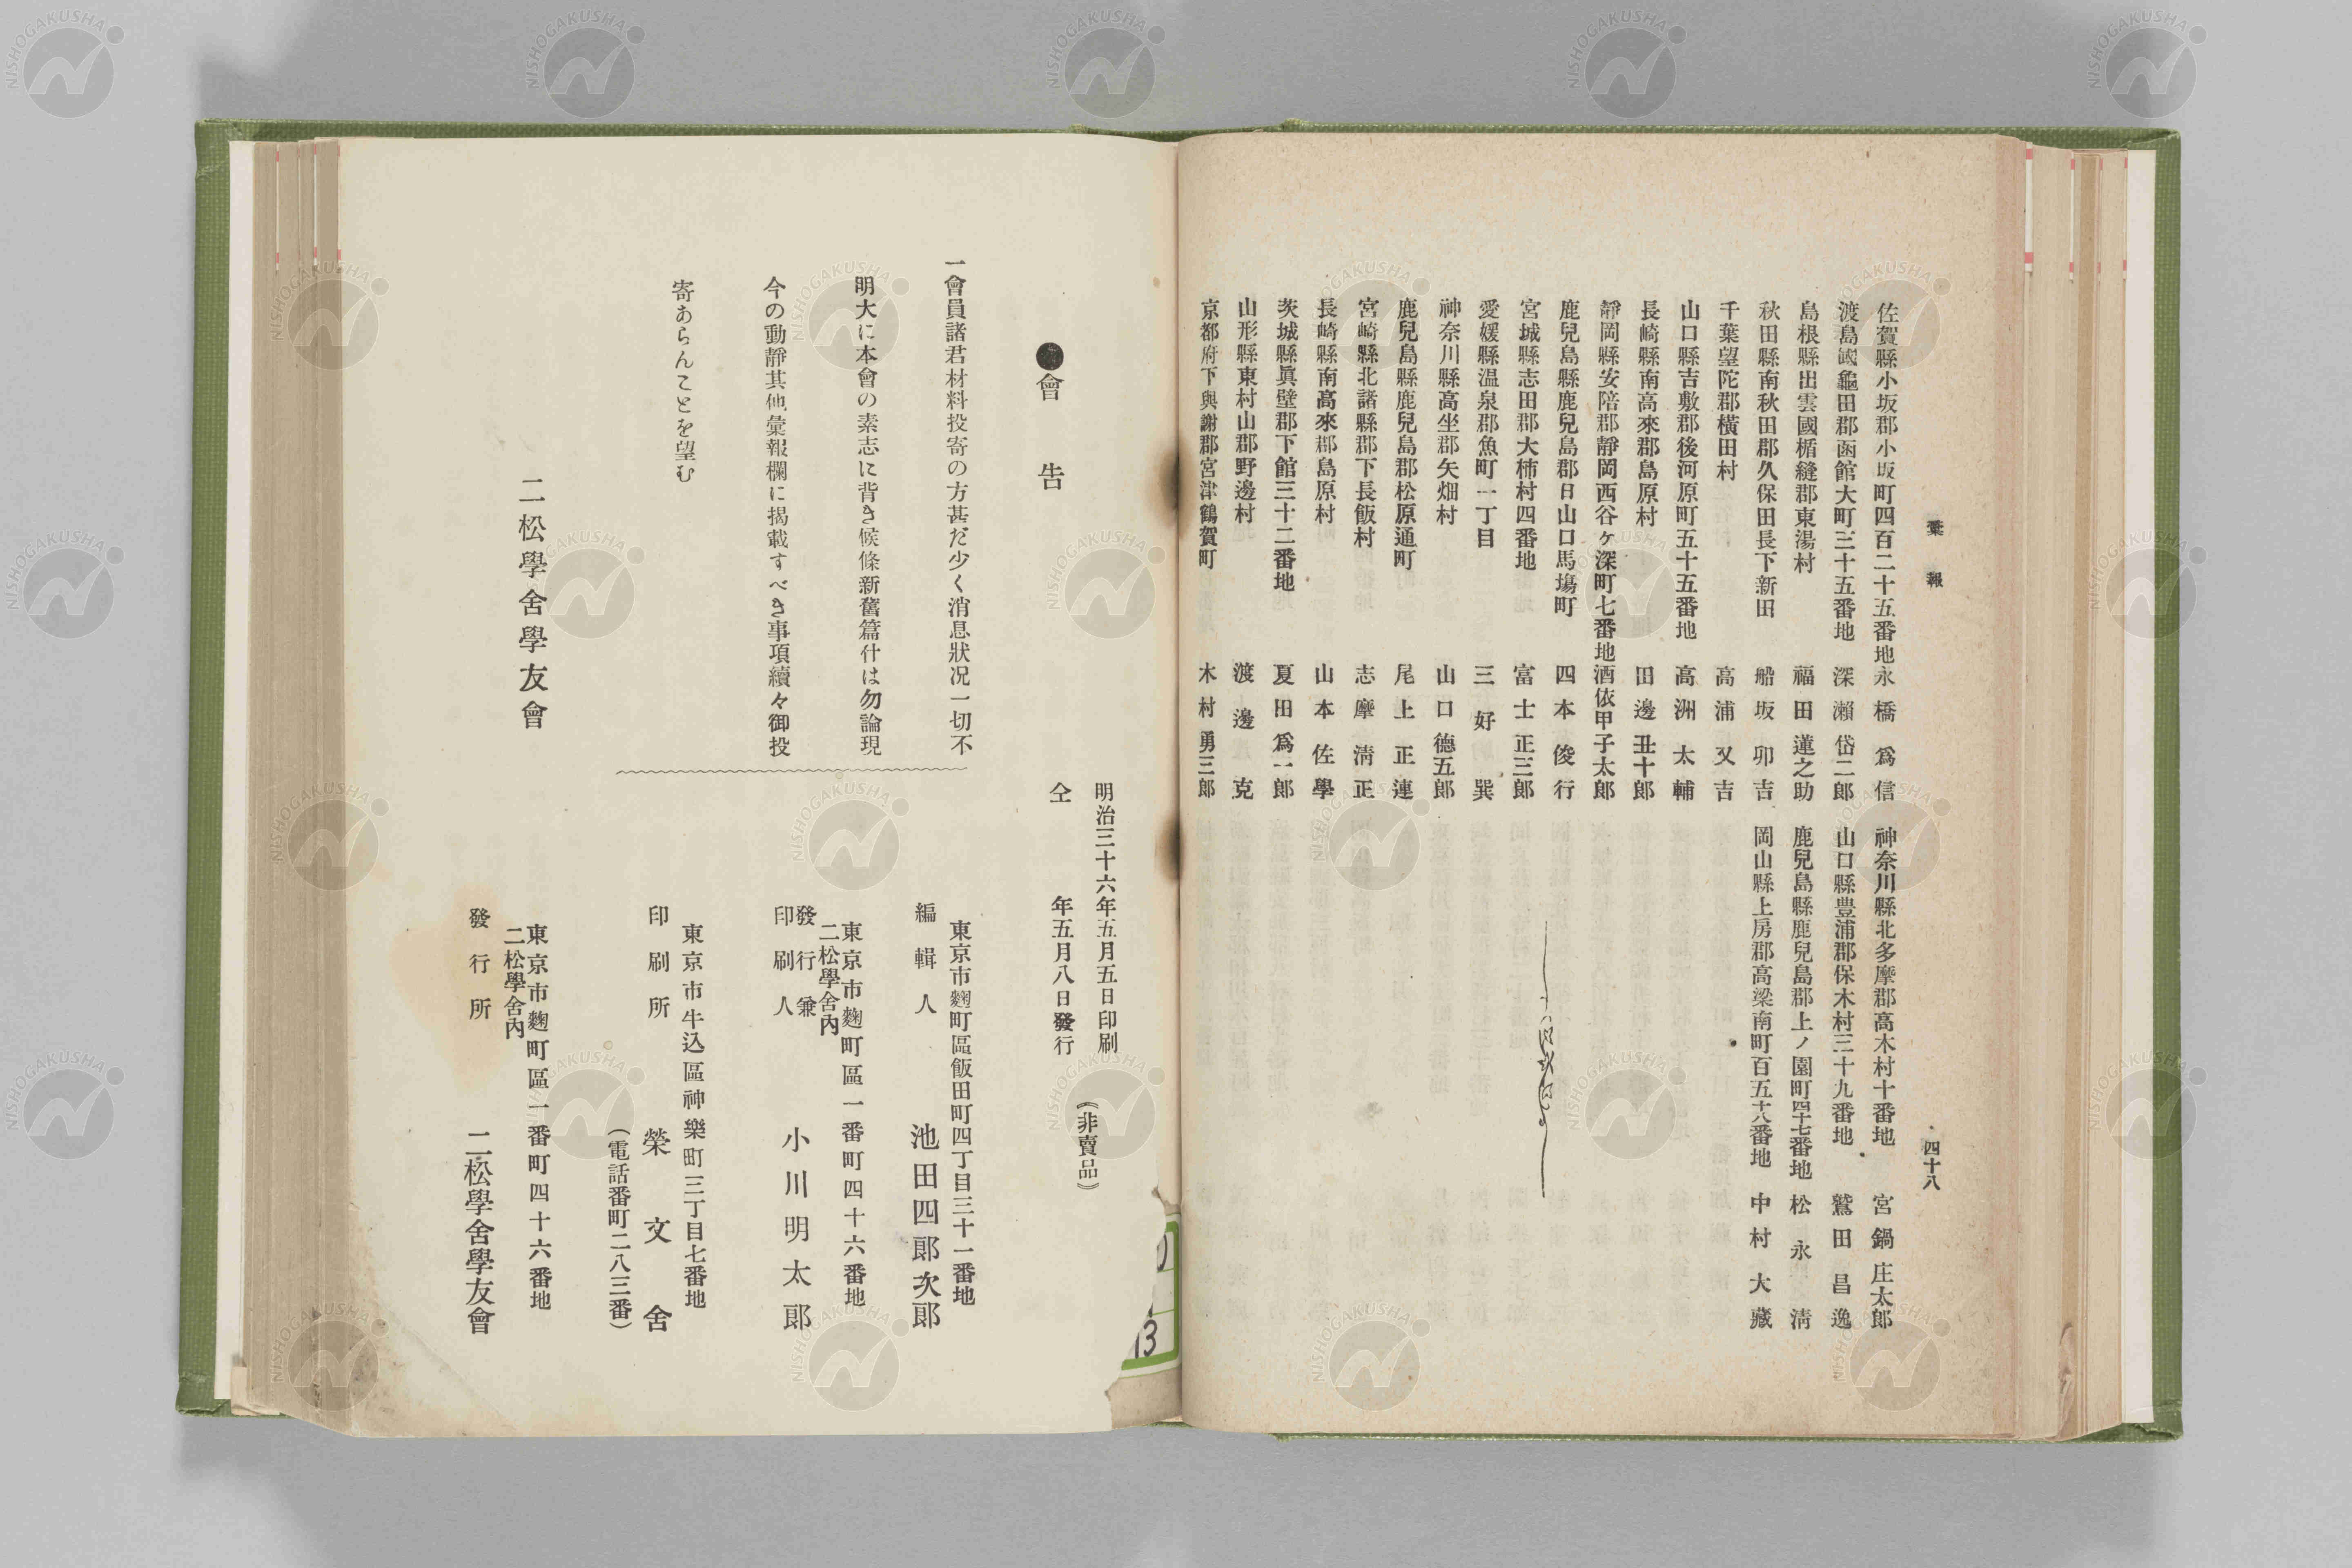 彙報
四十八
佐賀縣小坂郡小坂町四百二十五番地 永橋爲信
渡島國龜田郡函館大町三十五番地 深瀨岱二郎
島根縣出雲國楯縫郡東湯村 福田蓮之助
秋田縣南秋田郡久保田長下新田 船坂卯吉
千葉望陀郡橫田村 高浦又吉
山口縣吉敷郡後河原町五十五番地 高洲太輔
長崎縣南高來郡島原村 田邊丑十郎
靜岡縣安陪郡靜岡西谷ヶ深町七番地 酒依甲子太郎
鹿兒島縣鹿兒島郡日山口馬場町 四本俊行
宮城縣志田郡大柿村四番地 富士正三郎
愛媛縣温泉郡魚町一丁目 三好巽
神奈川縣高坐郡矢畑村 山口德五郎
鹿兒島縣鹿兒島郡松原通町 尾上正連
宮崎縣北諸縣郡下長飯村 志摩淸正
長崎縣南高來郡島原村 山本佐學
茨城縣眞壁郡下館三十二番地 夏田爲一郎
山形縣東村山郡野邊村 渡邊克
京都府下與謝郡宮津鶴賀町 木村勇三郎
神奈川縣北多摩郡高木村十番地 宮鍋庄太郎
山口縣豊浦郡保木村三十九番地 鷲田昌逸
鹿兒島縣鹿兒島郡上ノ園町四十七番地 松永淸
岡山縣上房郡高梁南町百五十八番地 中村大藏
●會告
一會員諸君材料投寄の方甚だ少く消息狀况一切不
明大に本會の素志に背き候條新舊篇什は勿論現
今の動靜其他彙報欄に揭載すべき事項續々御投
寄あらんことを望む
二松學舍學友會
明治三十六年五月五日印刷
仝年五月八日發行
《非賣品》
東京市麴町區飯田町四丁目三十一番地
編輯人 池田四郞次郞
東京市麴町區一番町四十六番地
二松學舍內
發行兼
印刷人 小川明太郞
東京市牛込區神樂町三丁目七番地
印刷所 榮文舍
(電話番町二八三番)
東京市麴町區一番町四十六番地
二松學舍內
發行所 二松學舍學友會
13
NISHOGAKUSHA